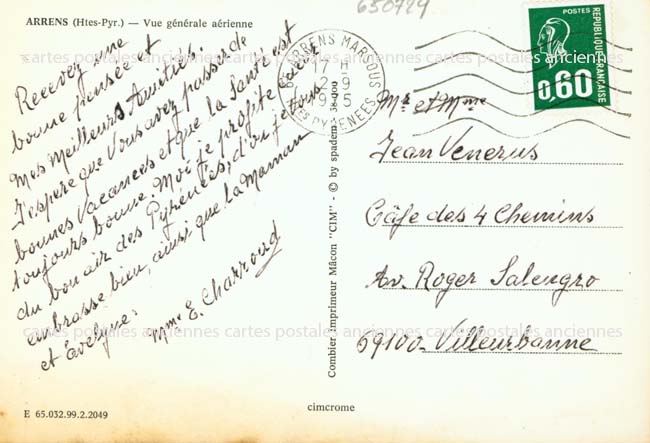 650729
ARRENS (Htes-Pyr.) — Vue générale aérienne
Recevez une
bonne pensée et
Mes Meilleurs Amitiés.
J'espère que Vous avez passer de
bonnes Vacances et que la Santé est
toujours bonne. Moi je profite
du bon air des Pyrénées, d'ou je Vous
embrasse bien, ainsi que la Maman
et Evelyne.
Mme E. Charroud
Combier Imprimeur Mâcon "CIM" - © by spadem
ARRENS MARSOUS
17 H
2 9
PYRENEES
REPUBLIQUE FRANÇAISE
0,60
Mr et Mme
Jean Venerus
Câfe des 4 Chemins
Av. Roger Salengro
69100 - Villeurbanne
cartes postales anciennes cartes postales anciennes cartes postales anciennes
cartes postales anciennes cartes postales anciennes cartes postales anciennes
E 65.032.99.2.2049
cimcrome